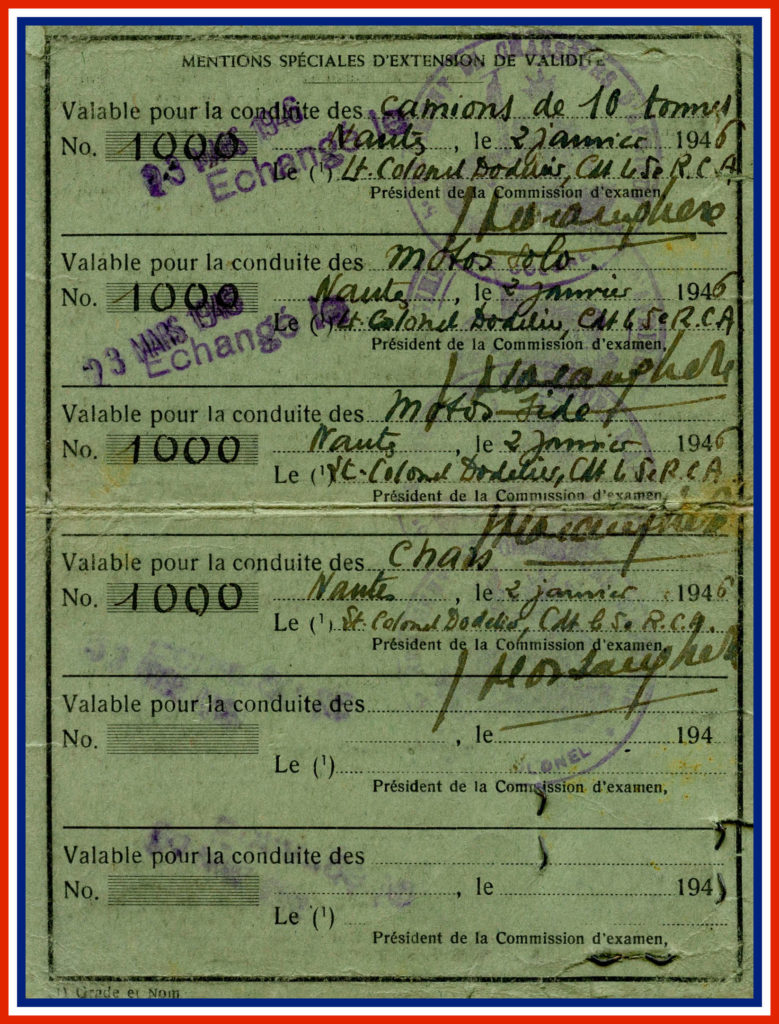 MENTIONS SPÉCIALES D'EXTENSION DE VALIDITÉ
Valable pour la conduite des camions de 10 tonnes
No. 1000 Nantes, le 2 janvier 1946
23 MARS 1946
Échangé le
Le (¹) Lt. Colonel Dodelier, Cdt le 5e R.C.A
Président de la Commission d'examen,
Valable pour la conduite des Motos Solo.
No. 1000 Nantes, le 2 janvier 1946
23 MARS 1946
Échangé le
Le (¹) Lt. Colonel Dodelier, Cdt le 5e R.C.A
Président de la Commission d'examen,
Valable pour la conduite des Motos Side
No. 1000 Nantes, le 2 janvier 1946
Le (¹) Lt. Colonel Dodelier, Cdt le 5e R.C.A.
Président de la Commission d'examen,
Valable pour la conduite des Chars
No. 1000 Nantes, le 2 janvier 1946
Le (¹) Lt. Colonel Dodelier, Cdt le 5e R.C.A.
Président de la Commission d'examen,
Valable pour la conduite des
No. , le 194
Le (¹)
Président de la Commission d'examen,
Valable pour la conduite des
No. , le 194
Le (¹)
Président de la Commission d'examen,
(1) Grade et Nom